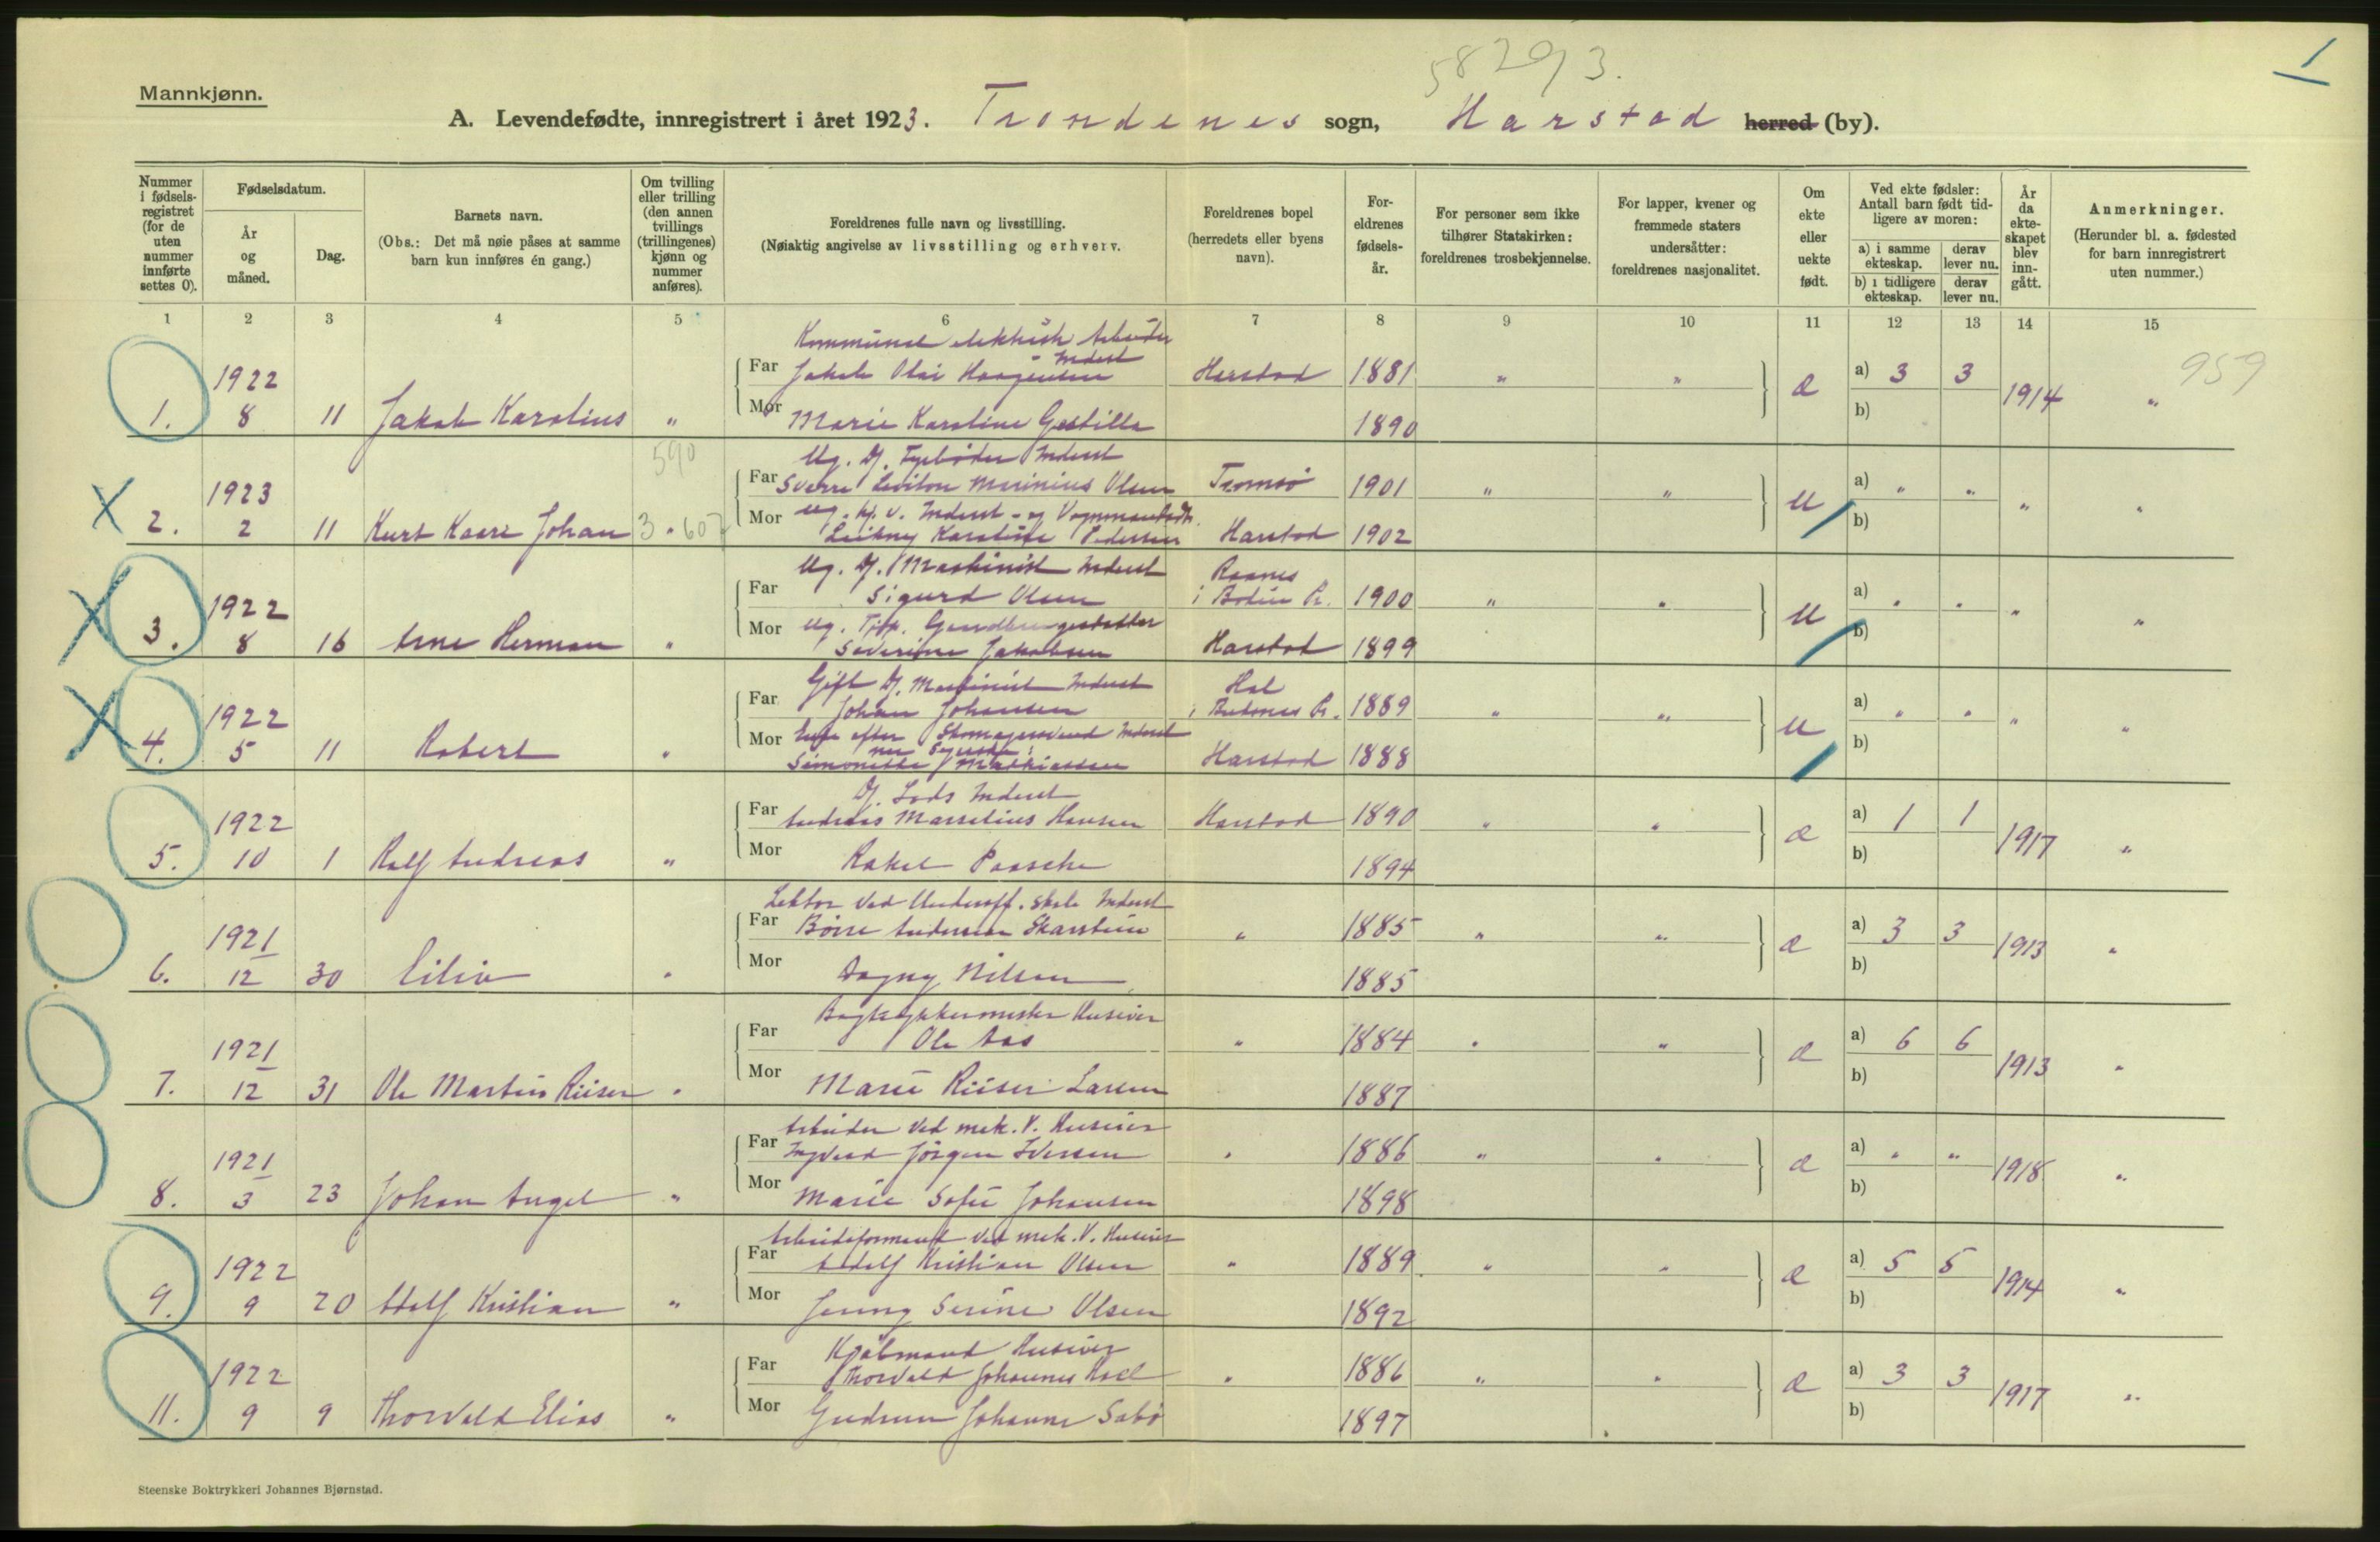 58293.
1
Mannkjønn.
A. Levendefødte, innregistrert i året 1923. Trondenes sogn, Harstad herred (by).
Nummer i fødsels-registret (for de uten nummer innførte settes 0).
Fødselsdatum.
År og måned.
Dag.
Barnets navn.
(Obs.: Det må nøie påses at samme barn kun innføres én gang.)
Om tvilling eller trilling (den annen tvillings (trillingenes) kjønn og nummer anføres).
Foreldrenes fulle navn og livsstilling.
(Nøiaktig angivelse av livsstilling og erhverv.
Foreldrenes bopel (herredets eller byens navn).
For-eldrenes fødsels-år.
For personer sem ikke tilhører Statskirken: foreldrenes trosbekjennelse.
For lapper, kvener og fremmede staters undersåtter: foreldrenes nasjonalitet.
Om ekte eller uekte født.
Ved ekte fødsler: Antall barn født tid-ligere av moren:
a) i samme ekteskap. derav lever nu.
b) i tidligere ekteskap. derav lever nu.
År da ekte-skapet blev inn-gått.
Anmerkninger.
(Herunder bl. a. fødested for barn innregistrert uten nummer.)
1 2 3 4 5 6 7 8 9 10 11 12 13 14 15
Kommunal elektrisk Arbeider
Inderst
1922 Far Jakob Olai Haagensen Harstad 1881 " " a) 3 3 959
1. 8 11 Jakob Karolius " Mor Marie Karoline Gestille 1890 æ b) 1914 "
590
Ug. Dj. Fyrbøder Inderst
1923 Far Sverre Leviton Marinius Olsen Tromsø 1901 " " u a) " " " "
Mor ug. hj. v. Inderst
2. 2 11 Kurt Kaare Johan 3 · 607 Karoline Pedersen Harstad 1902 b)
Ug. Dj. Maskinist Inderst
1922 Far Sigurd Olsen i Bodin Pr. 1900 " " u a) " " " "
Mor ug. Tjp.
3. 8 16 Arne Herman " Severine Jakobsen Harstad 1899 b)
Gift Dj. Maskinist Inderst Hol
1922 Far Johan Johansen i Pr. 1889 " " u a) " " " "
Mor Enke efter Skomagersvend Inderst
4. 5 11 Robert " Simonette Mathiassen Harstad 1888 b)
Dj. Lods Inderst
1922 Far Andreas Marselius Hansen Harstad 1890 " " æ a) 1 1
5. 10 1 Rolf Andreas " Mor Rakel Paasche 1894 b) 1917 "
Lektor ved Underoff. skole Inderst
1921 Far Børre Andersen Skarstein " 1885 " " æ a) 3 3 1913 "
6. 12 30 Eiliv " Mor Dagny Nilsen 1885 b)
Huseier
1921 Far Ole Aas " 1884 " " æ a) 6 6
7. 12 31 Ole Martin Riiser " Mor Marie Riiser Larsen 1887 b) 1913 "
Arbeider ved mek. V. Huseier
1921 Far Ingvard Jörgen Iversen " 1886 " " æ a) " " 1918 "
8. 3 23 Johan Angel " Mor Marie Sofie Johansen 1898 b)
Arbeidsformand ved mek. V. Huseier
1922 Far Adolf Kristian Olsen " 1889 " " æ a) 5 5 1914 "
9. 9 20 Adolf Kristian " Mor Jenny Serine Olsen 1892 b)
Kjøbmand Huseier
1922 Far Thorvald Johannes " 1886 " " æ a) 3 3 1917 "
11. 9 9 Thorvald Elias " Mor Gudrun Johanne Sabø 1897 b)
Steenske Boktrykkeri Johannes Bjørnstad.